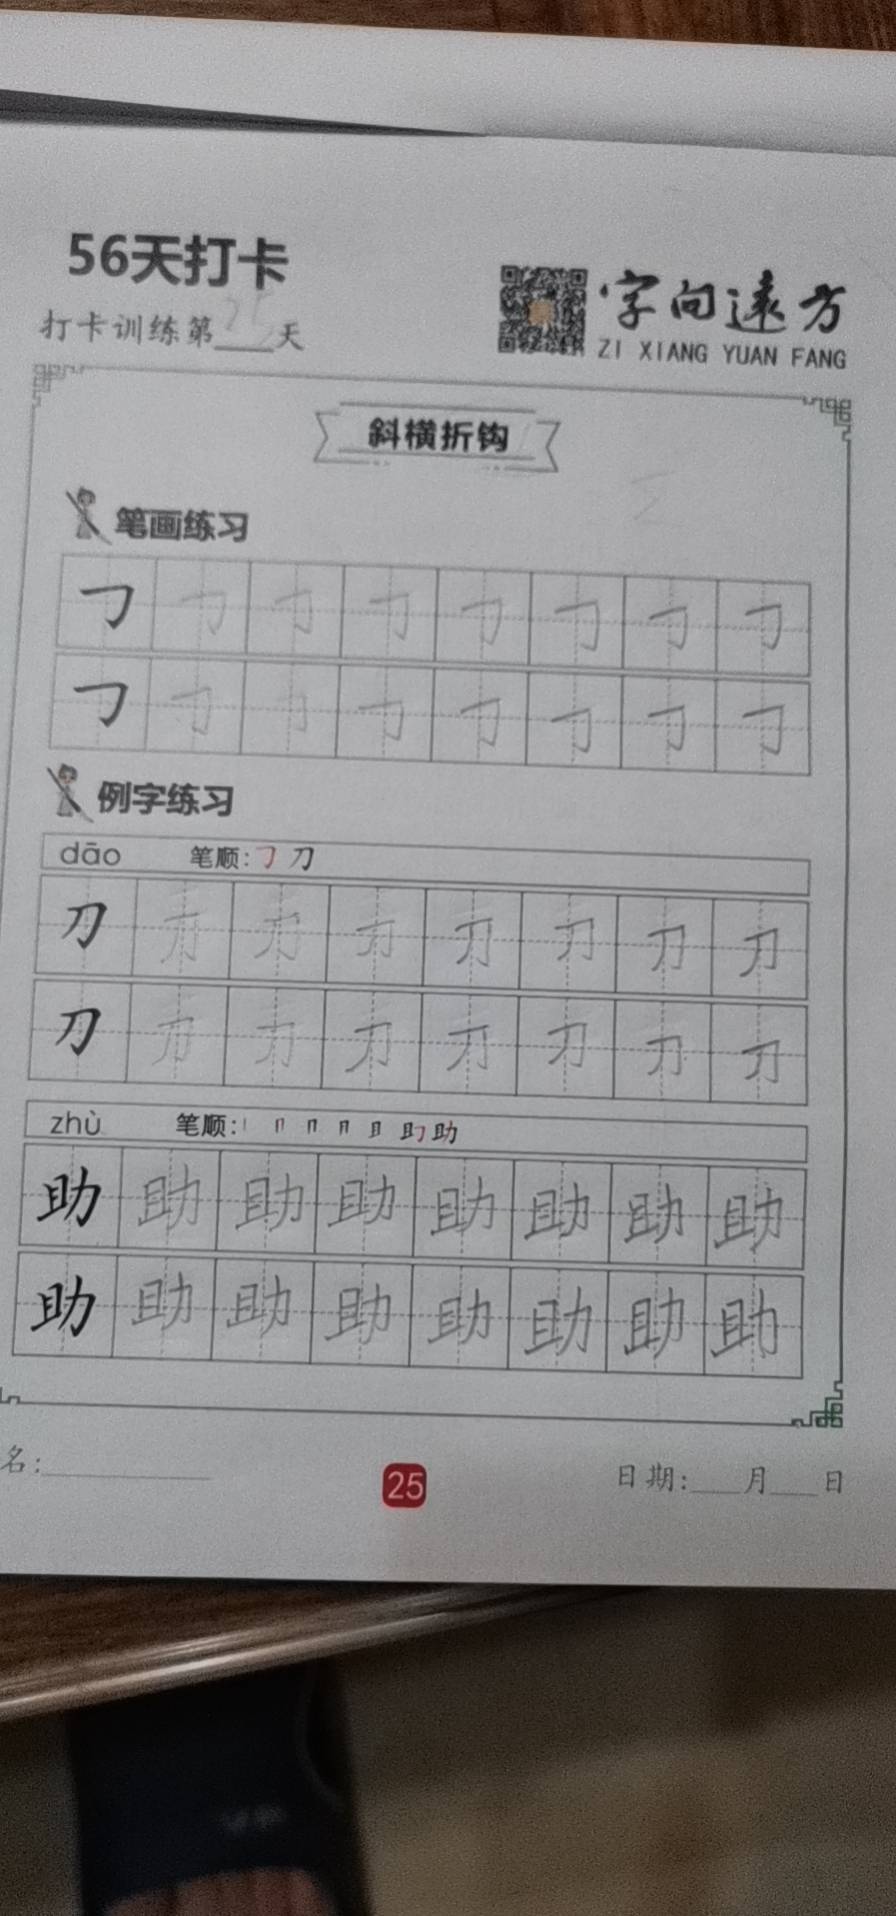 56天打卡
打卡训练第25天
字向远方
ZI XIANG YUAN FANG
斜横折钩
笔画练习
𠃌 𠃌 𠃌 𠃌 𠃌 𠃌 𠃌 𠃌
𠃌 𠃌 𠃌 𠃌 𠃌 𠃌 𠃌 𠃌
例字练习
dāo 笔顺: 𠃌 刀
刀 刀 刀 刀 刀 刀 刀 刀
刀 刀 刀 刀 刀 刀 刀 刀
zhù 笔顺: 助
助 助 助 助 助 助 助 助
助 助 助 助 助 助 助 助
名:
25
日期: 月 日